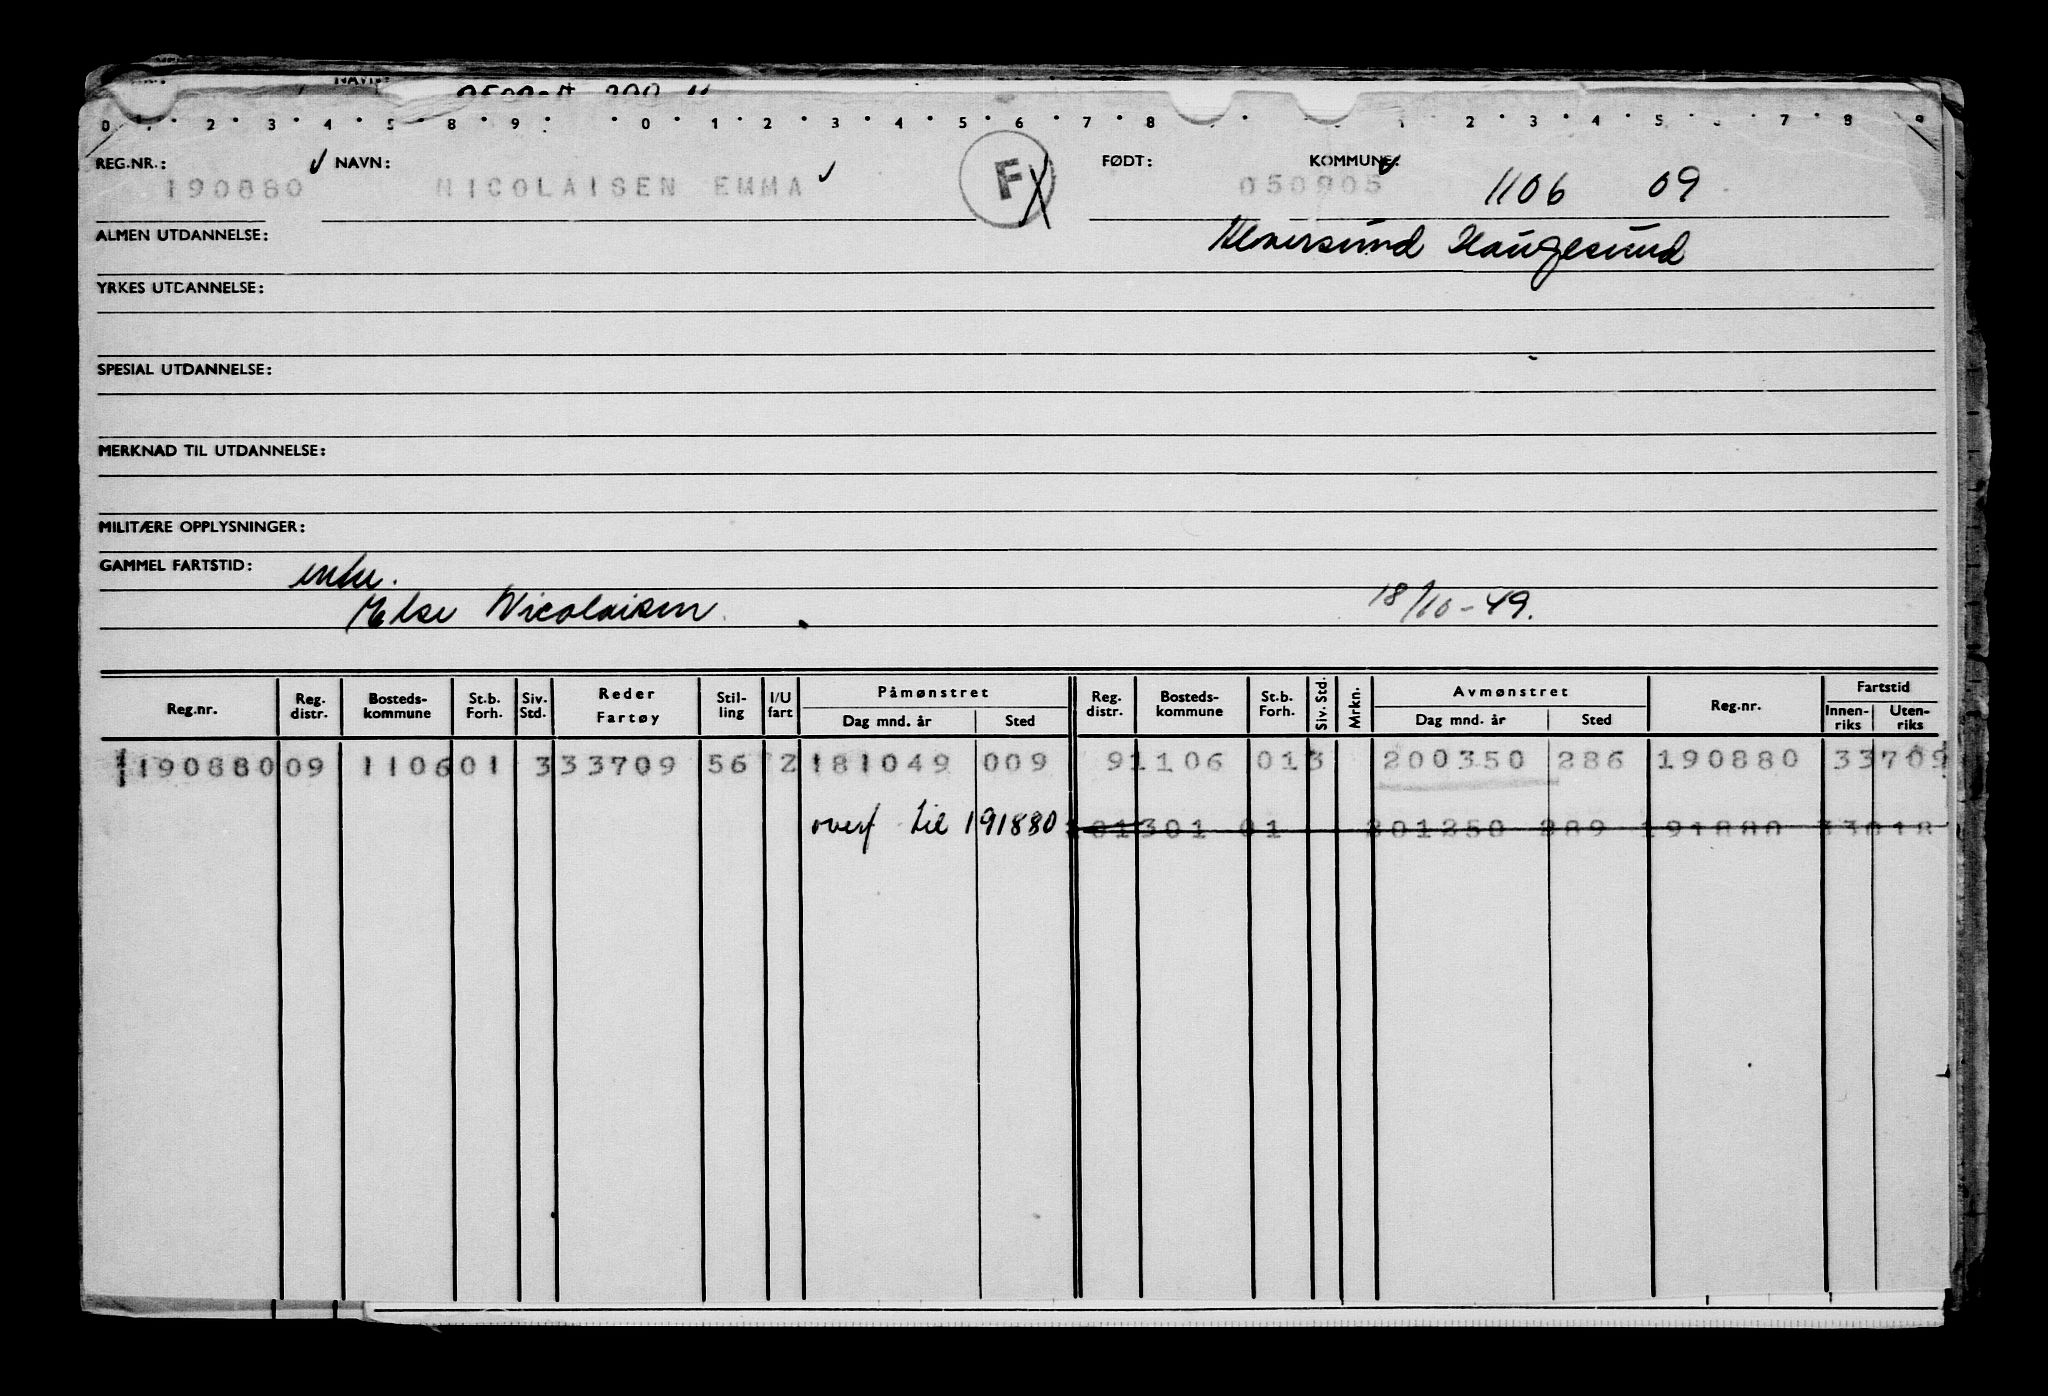 0 . 2 . 3 . 4 . 5 8 . 9 . . 0 . 1 . 2 . 3 . 4 . 5 . 6 . 7 . 8 . 1 . 2 . 3 . 4 . 5 . 7 . 8 . 9
REG.NR.: NAVN: F FØDT: KOMMUNE:
190880 NICOLAISEN EMMA 050905 1106 09
ALMEN UTDANNELSE: Haugesund
YRKES UTDANNELSE:
SPESIAL UTDANNELSE:
MERKNAD TIL UTDANNELSE:
MILITÆRE OPPLYSNINGER:
GAMMEL FARTSTID:
Else Nicolaisen. 18/10-49.
Reg.nr. Reg. distr. Bosteds-kommune St.b. Forh. Siv. Std. Reder Fartøy Stil-ling I/U fart Påmønstret Dag mnd. år Sted Reg. distr. Bosteds-kommune St.b. Forh. Siv. Std. Mrkn. Avmønstret Dag mnd. år Sted Reg.nr. Fartstid Innen-riks Uten-riks
190880 09 1106 01 3 33709 56 2 181049 009 9 1106 01 3 200350 286 190880 33709
overf til 191880 01 301 01 301250 289 191880 33018